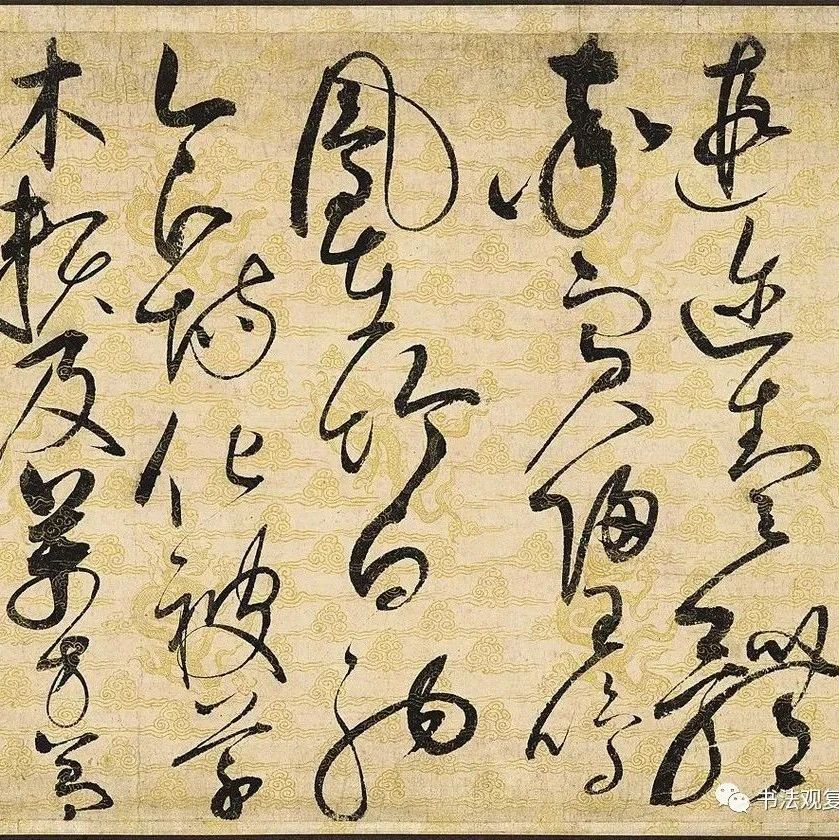 遐邇壹體
率賓歸王鳴
鳳在竹白駒
食場化被草
木賴及萬方蓋
书法观复